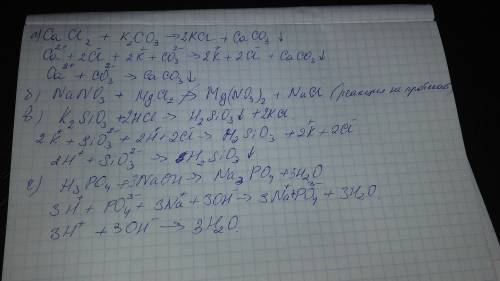 а) CaCl₂ + K₂CO₃ → 2KCl + CaCO₃↓
Ca²⁺ + 2Cl⁻ + 2K⁺ + CO₃²⁻ → 2K⁺ + 2Cl⁻ + CaCO₃↓
Ca²⁺ + CO₃²⁻ → CaCO₃↓
б) NaNO₃ + MgCl₂ ↛ Mg(NO₃)₂ + NaCl (реакция не
в) K₂SiO₃ + 2HCl → H₂SiO₃↓ + 2KCl
2K⁺ + SiO₃²⁻ + 2H⁺ + 2Cl⁻ → H₂SiO₃ + 2K⁺ + 2Cl⁻
2H⁺ + SiO₃²⁻ → H₂SiO₃↓
с) H₃PO₄ + 3NaOH → Na₃PO₄ + 3H₂O
3H⁺ + PO₄³⁻ + 3Na⁺ + 3OH⁻ → 3Na⁺ + PO₄³⁻ + 3H₂O
3H⁺ + 3OH⁻ → 3H₂O